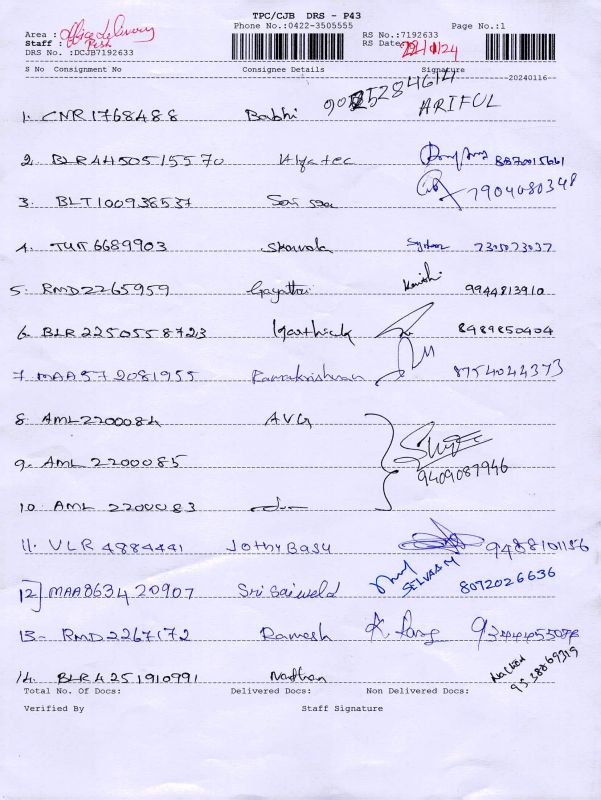 TPC/CJB DRS - P43
Phone No.:0422-3505555 Page No.:1
Area : office delivery
Staff :
DRS No. :DCJB7192633
RS No.:7192633
RS Date: 22/1/24
S No Consignment No Consignee Details Signature
20240116
1. CNR1768488 Babhi ARIFUL
2. BLR4450515570
3. BLT100938537 7904080348
4. 6689903 7305073037
5. RMD2265959 Gayathri 9944813910
6. BLR2250558723 Karthick 8489850404
7. MAA572081955 Ramakrishnan 8754044373
8. AML2200084 AVG
9. AML 2200085 9409087946
10. AML 2200083
11. VLR 4884441 Jothy Basu 9488101156
12] MAA8634 20907 Sri Sai weld SELVAM 8072026636
13- RMD2267172 Ramesh
14. BLR4251910991 Nadhan
Total No. Of Docs: Delivered Docs: Non Delivered Docs:
Verified By Staff Signature